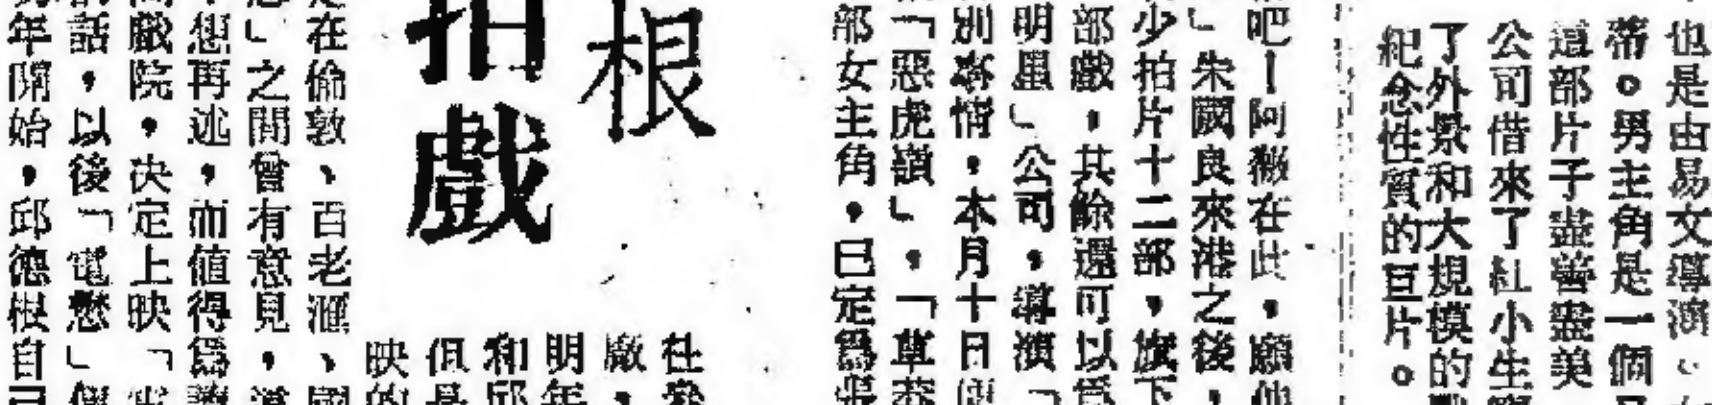 也是由易文導演。
蒂。男主角是一個
這部片子盡善盡美
公司借來了紅小生
了外景和大規模的
紀念性質的巨片。
吧—阿薇在此，願他
」朱國良來港之後，
少拍片十二部，旗下
部戲，其餘還可以爲
明星」公司，導演「
別事情，本月十日便
「惡虎嶺」，「草莽
部女主角，已定爲張
根
拍戲
社
廠，
明年
和邱
但是
映的
在倫敦、百老滙、國
」之間曾有意見，
想再述，而值得爲讀
戲院，決定上映「
話，以後「電懋」
年開始，邱德根自己